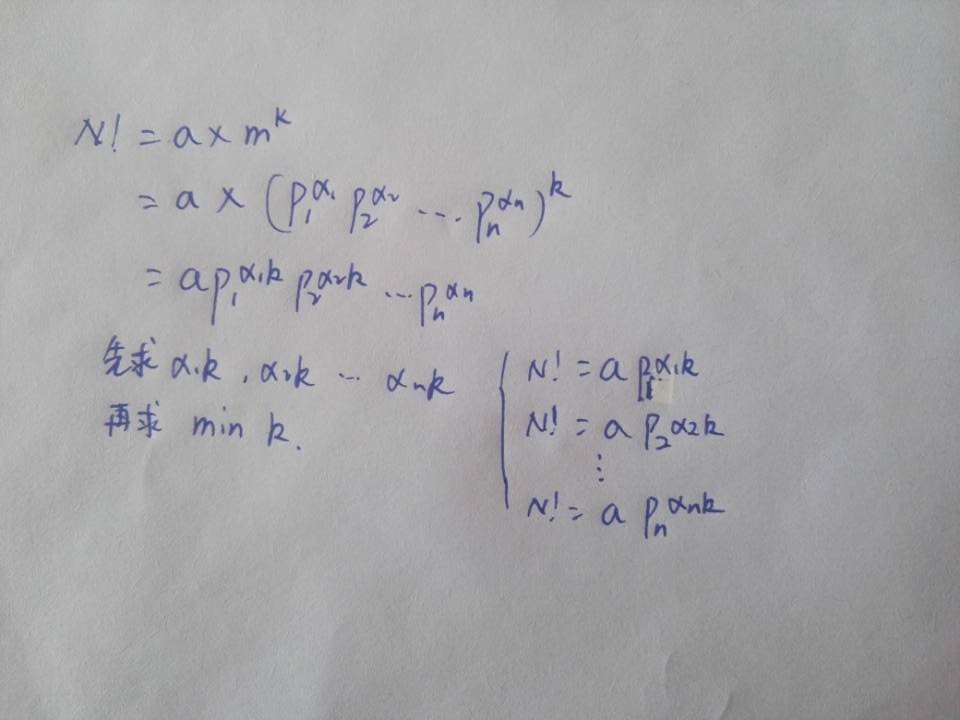 N! = a × m^k
= a × (p₁^α₁ p₂^α₂ ... pₙ^αₙ)^k
= a p₁^α₁k p₂^α₂k ... pₙ^αₙ
先求 α₁k , α₂k ... αₙk
再求 min k.
N! = a p₁^α₁k
N! = a p₂^α₂k
⋮
N! = a pₙ^αₙk